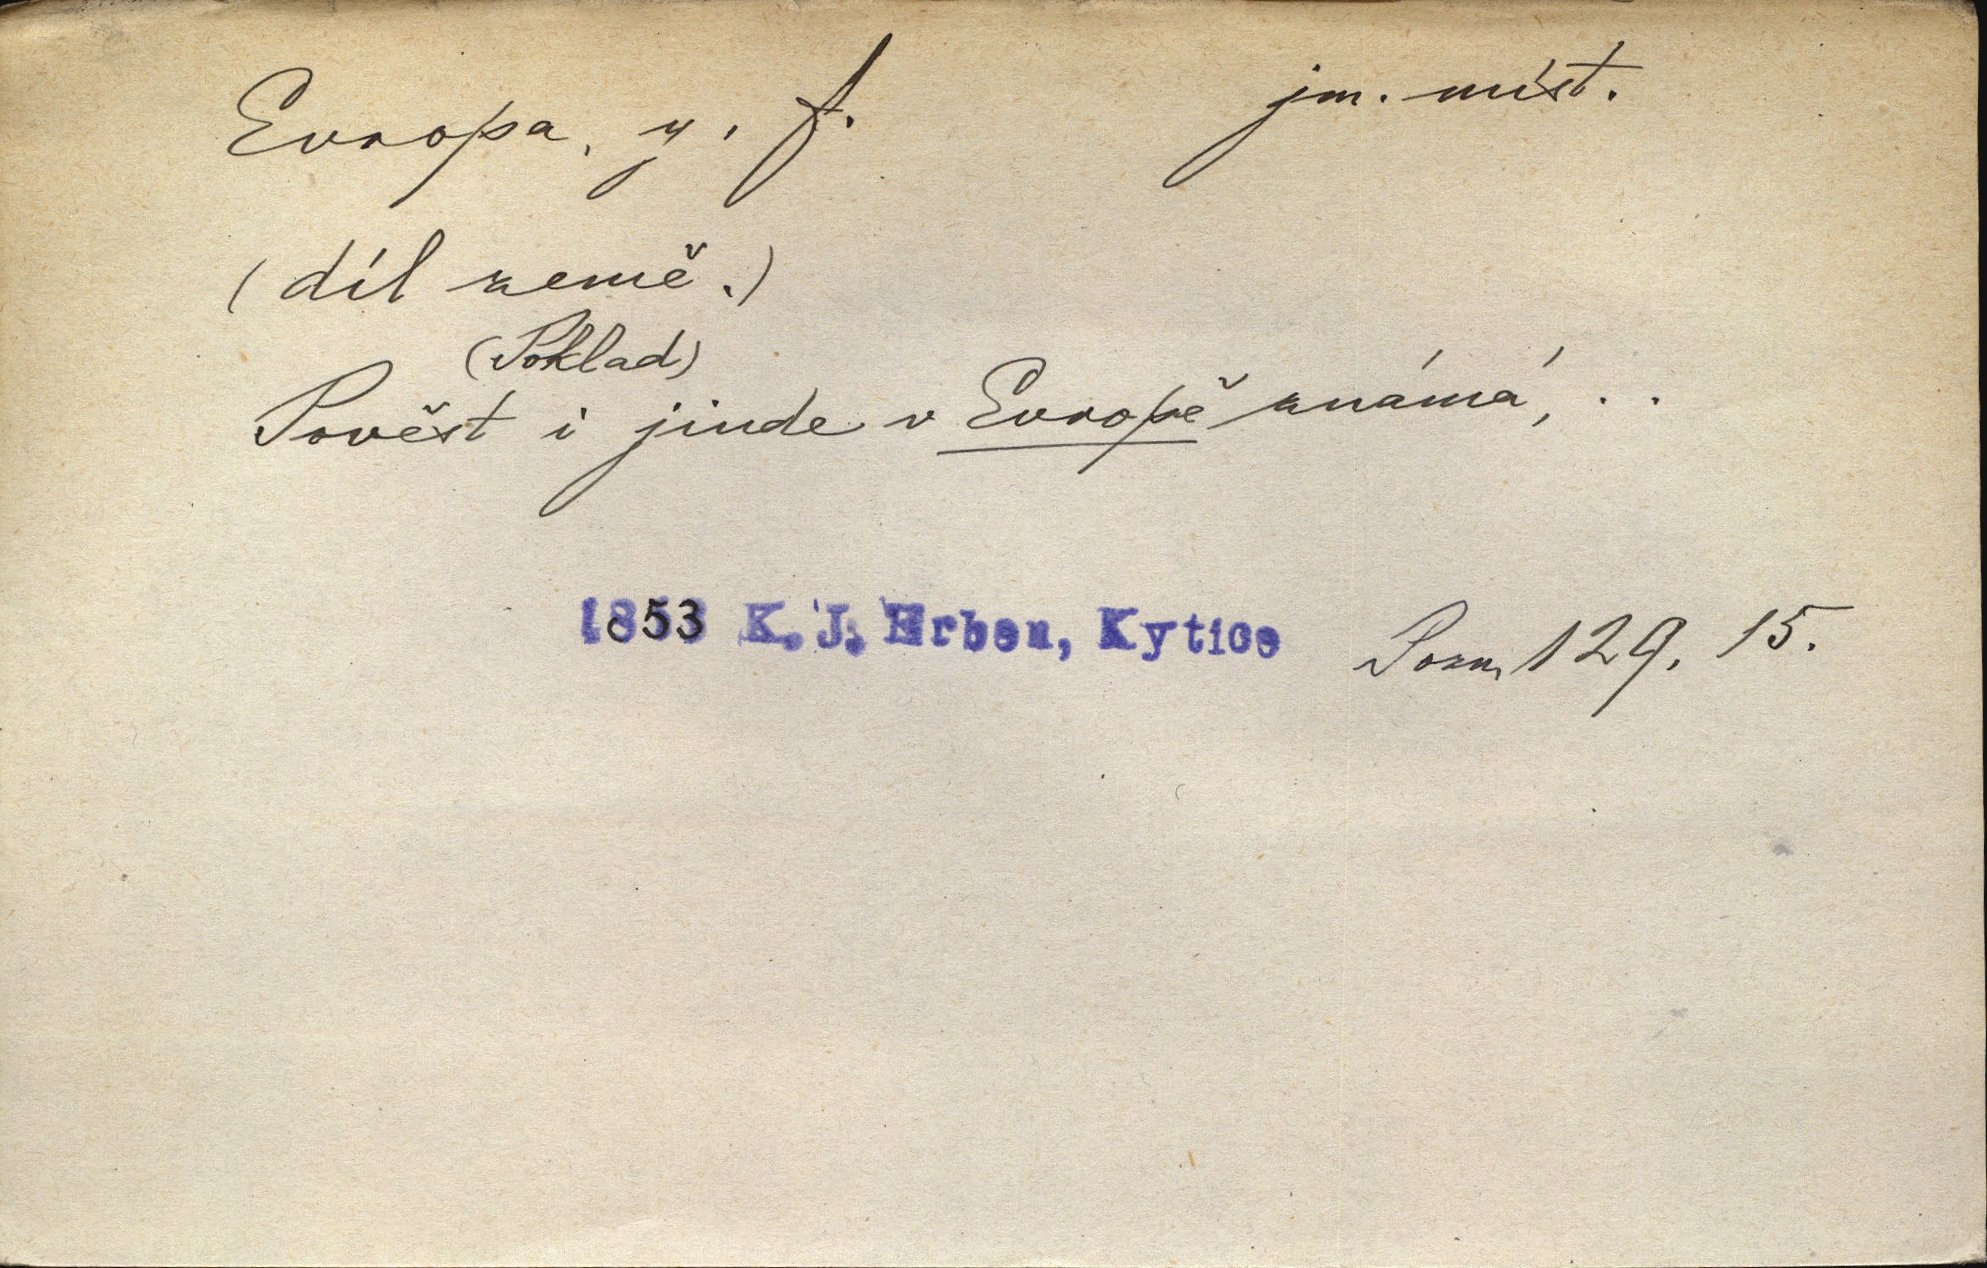 Evropa, y, f. jm. míst.
(díl země.)
(Poklad)
Pověst i jinde v Evropě známá, . .
1853 K. J. Erben, Kytice Pozn. 129. 15.